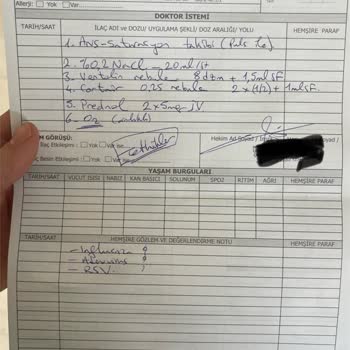 Allerji: Yok Var
DOKTOR İSTEMİ
TARİH/SAAT İLAÇ ADI ve DOZU/ UYGULAMA ŞEKLİ/ DOZ ARALIĞI/ YOLU HEMŞİRE PARAF
1. Ans-Saturasyon takibi (Puls ile)
2. %0,2 NaCl 20 ml/st
3. Ventolin nebule 8 dzm + 1,5ml SF
4. 0.25 nebule 2x(1/2) + 1ml SF
5. Prednol 2x5mg IV
6. O2
GÖRÜŞÜ:
İlaç Etkileşimi: Yok Var ise
Besin Etkileşimi: Yok Var
Hekim Ad-Soyad /
YAŞAM BULGULARI
TARİH/SAAT VÜCUT ISISI NABIZ KAN BASICI SOLUNUM SPO2 RİTİM AĞRI HEMŞİRE PARAF
TARİH/SAAT HEMŞİRE GÖZLEM VE DEĞERLENDİRME NOTU HEMŞİRE PARAF
- Influenza ?
- Adenovirus ?
- RSV ?